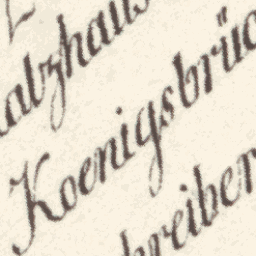 alzhaus
Koenigsbrüc
hreiber